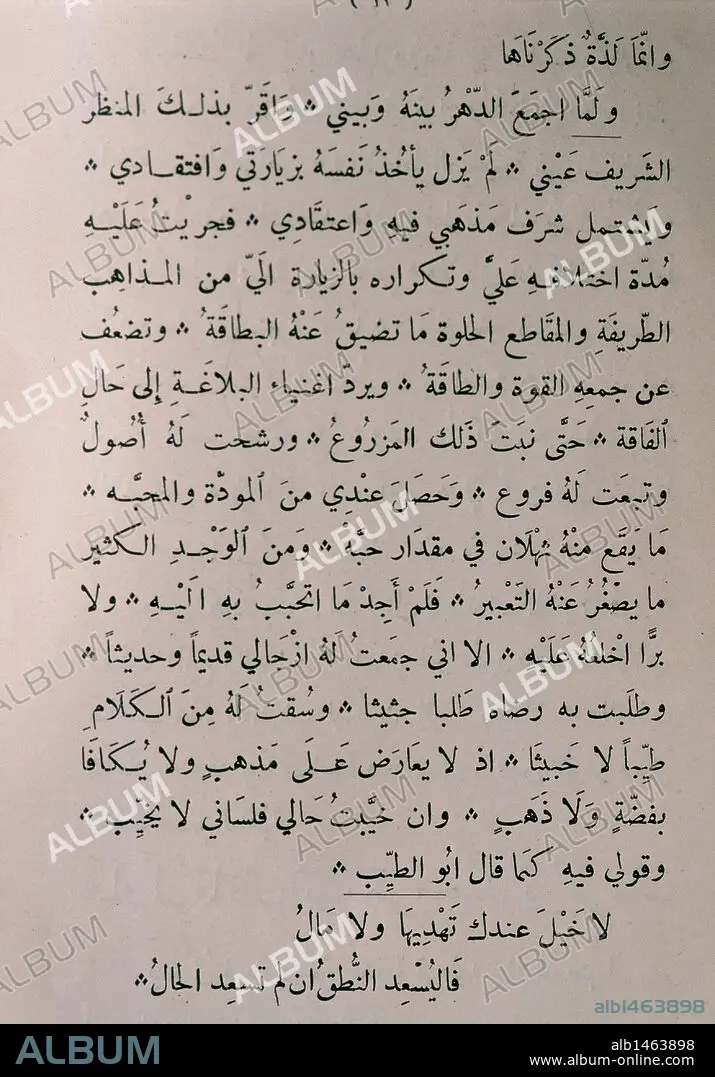 ( ٦٢ )
وانّمَا لَذَّةٌ ذَكَرْنَاهَا
وَلَمَّا اجمَعَ الدّهْرُ بينَهُ وَبيني ❖ وَاقَرّ بذلكَ المنظر
الشَريف عَيْني ❖ لَمْ يَزل يأخُذُ نَفسَهُ بزيارَتي وَافتقادي ❖
وَيشتمل شرَف مَذهَبي فيهِ وَاعتقَادِي ❖ فجريْتُ عَلَيْهِ
مُدّة اختلافهِ عَليَّ وتكراره بالزيارة اليّ من المذاهِب
الطّريفَةِ والمقَاطع الحلوة مَا تضيقُ عَنْهُ البطاقَةُ ❖ وتضعُف
عن جمعِهِ القوة والطاقَةُ ❖ ويردّ اغنياء البلاغَةِ إلى حَالِ
الفَاقة ❖ حَتَّى نبَتَ ذَلك المَزرُوعُ ❖ ورشحت لَهُ أُصُولٌ
وتبعَت لَهُ فروع ❖ وَحَصَلَ عنْدِي منَ المودّة والمحبّه ❖
مَا يَقَع منْهُ ثهْلَان في مقدَار حبَّهْ ❖ وَمنَ الوَجْدِ الكثير
ما يصْغُرُ عَنْهُ التَعْبيرُ ❖ فَلَمْ أَجِدْ مَا اتحبَّبُ بهِ اليْهِ ❖ ولا
برًّا اخْلعُهُ عَلَيْه ❖ الا اني جمَعتُ لهُ ازْجَالي قديماً وحديثاً ❖
وطلَبت به رضاه طَلبا جثيثا ❖ وسُقتُ لَهُ مِنَ الكَلَامِ
طيِّباً لا خَبيثَا ❖ اذ لا يعَارَض عَلَى مَذهبٍ ولا يُكَافَا
بفضّةٍ وَلَا ذَهَبٍ ❖ وان خيَّبتُ حَالي فلسَاني لا يخيِّب ❖
وقولي فيهِ كَمَا قال ابُو الطيِّب ❖
لا خَيْلَ عندك تَهْدِيهَا ولا مَالُ
فَاليُسْعِد النُّطقُ ان لم تسعِد الحالُ ❖
ALBUM
alb1463898
www.album-online.com